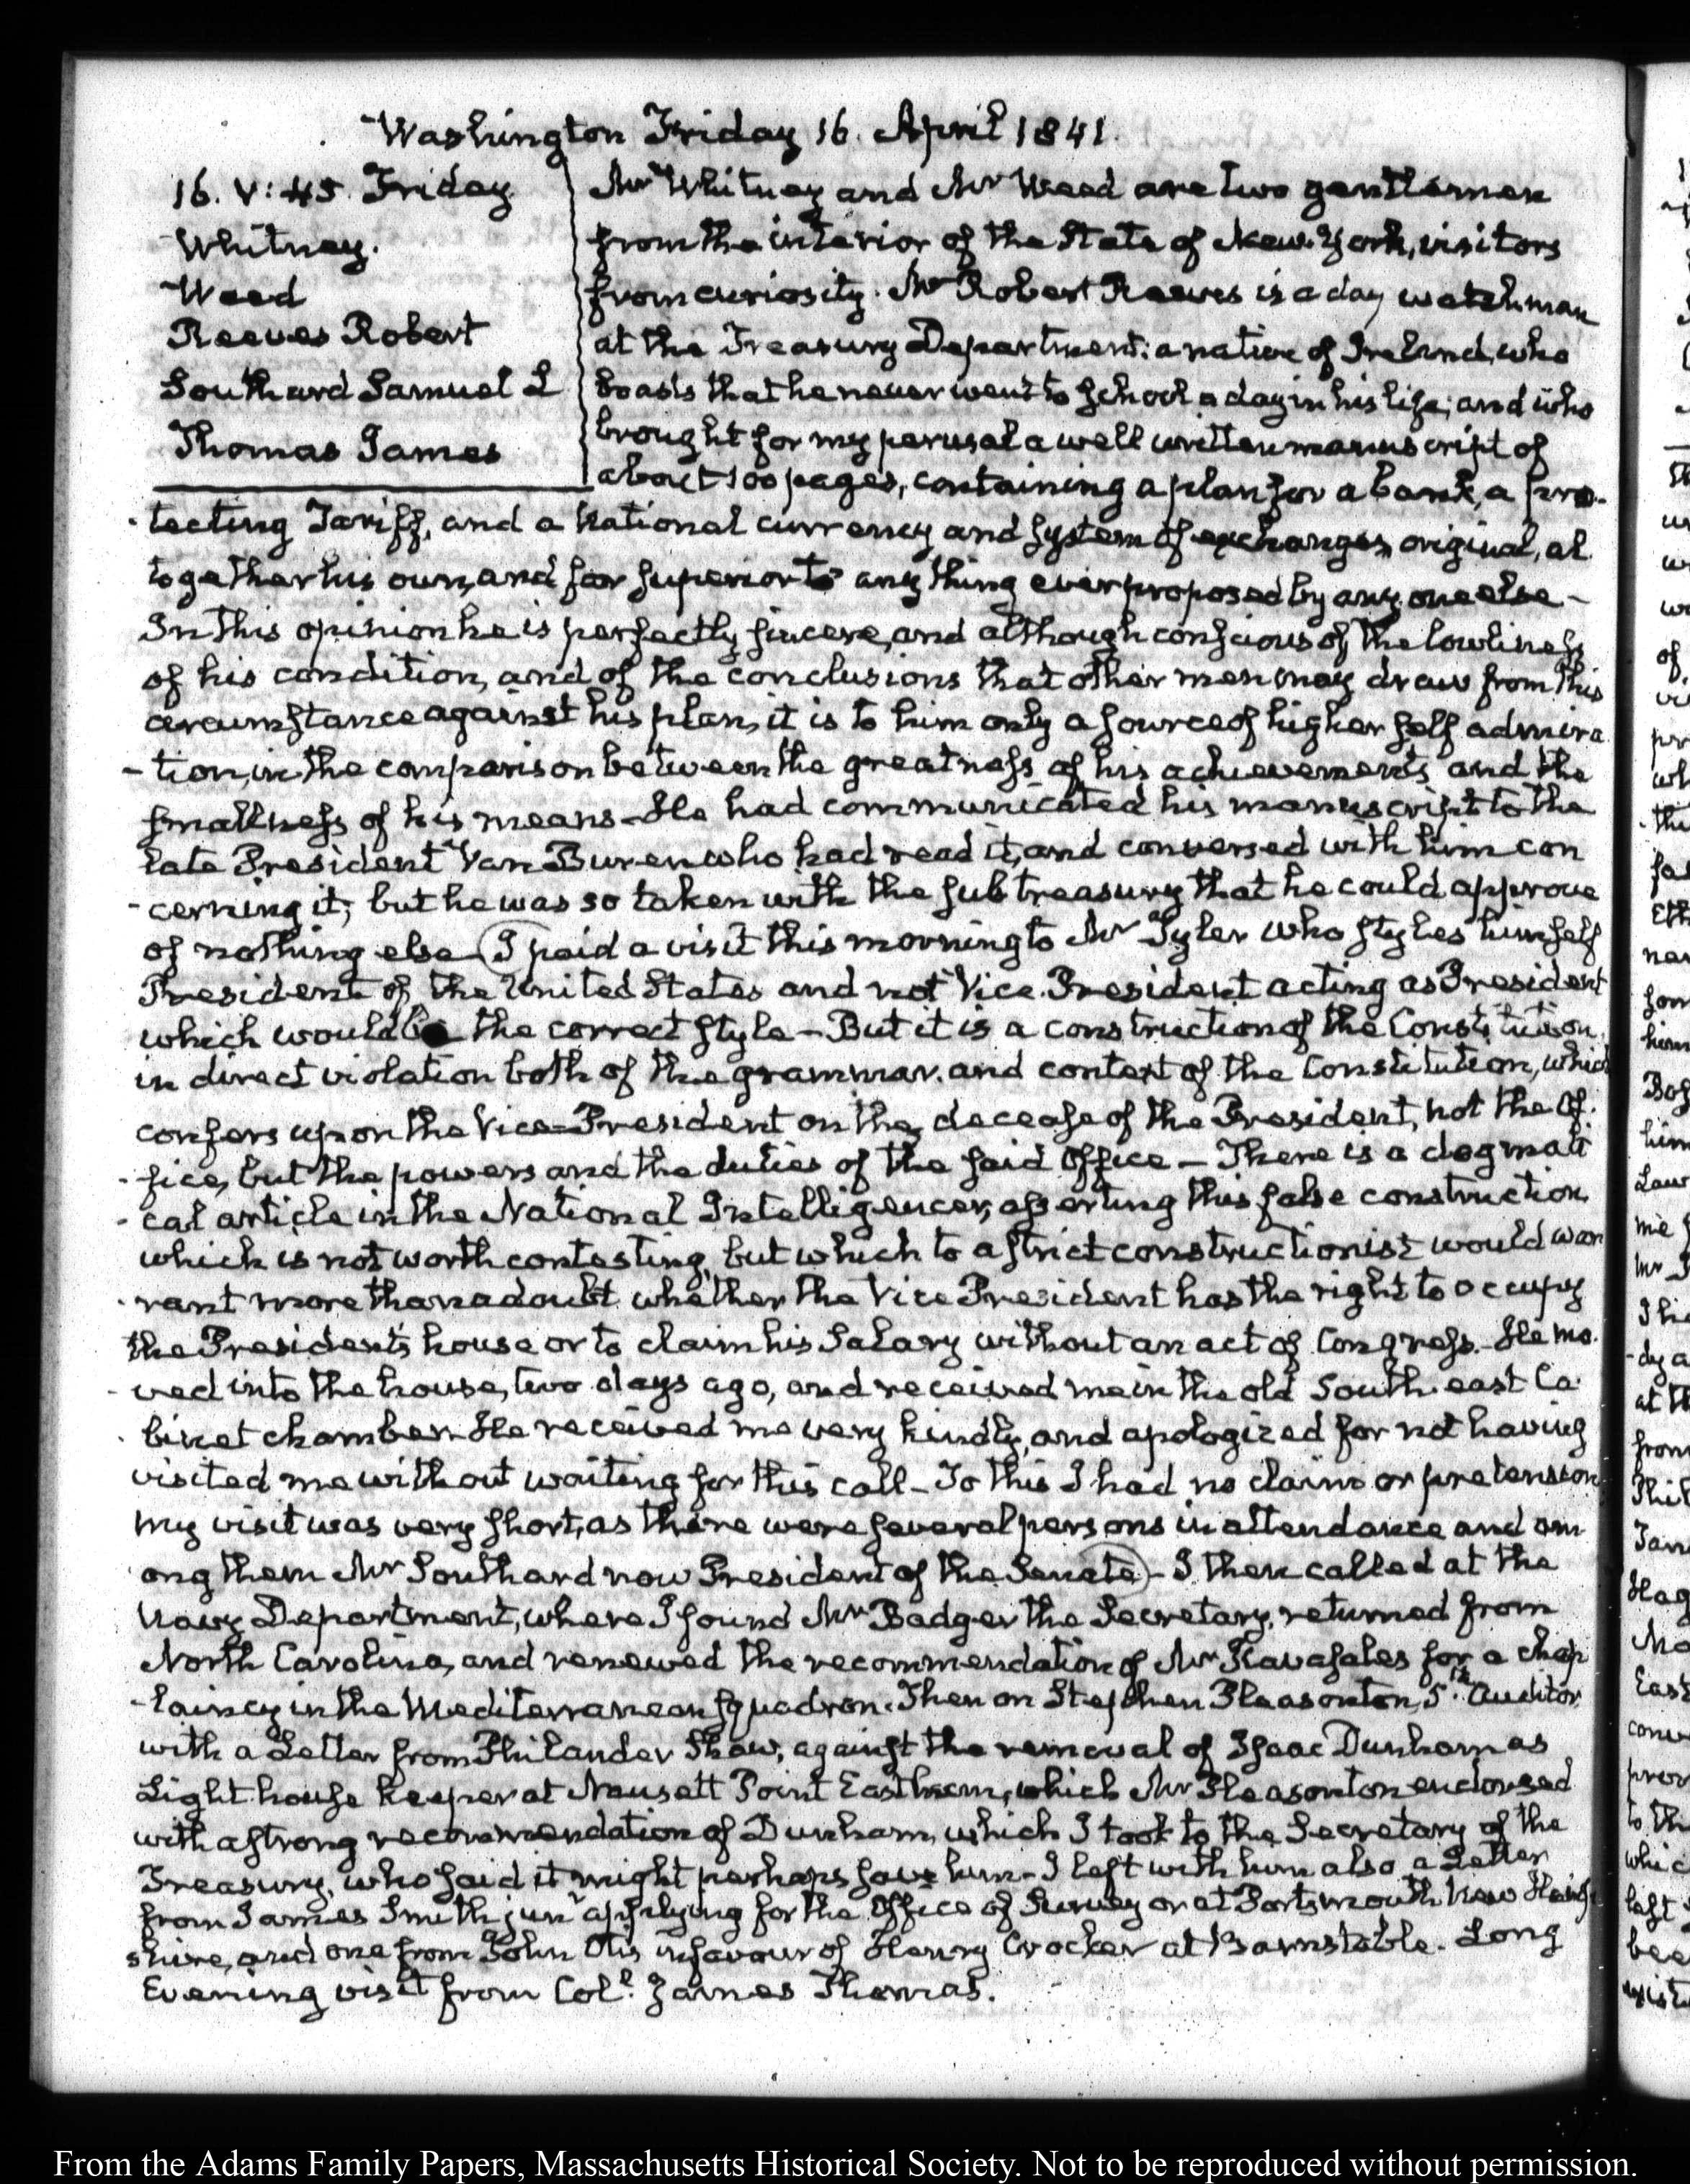 Washington Friday 16. April 1841.
16. V:45. Friday
Whitney.
Weed
Reeves Robert
Southard Samuel L
Thomas James
Mr Whitney and Mr Weed are two gentlemen
from the interior of the State of New-York, visitors
from curiosity. Mr Robert Reeves is a day watchman
at the Treasury Department: a native of Ireland, who
boasts that he never went to school a day in his life; and who
brought for my perusal a well written manuscript of
about 100 pages, containing a plan for a bank, a pro-
tecting Tariff, and a National currency and system of exchanges, original, al
together his own, and far superior to any thing ever proposed by any one else –
In this opinion he is perfectly sincere, and although conscious of the lowliness
of his condition, and of the conclusions that other men may draw from this
circumstance against his plan, it is to him only a source of higher self admira
-tion, in the comparison between the greatness of his achievements and the
smallness of his means – He had communicated his manuscript to the
late President Van Buren who had read it, and conversed with him con
-cerning it; but he was so taken with the subtreasury that he could approve
of nothing else – I paid a visit this morning to Mr Tyler who styles himself
President of the United States and not Vice-President acting as President
which would be the correct style – But it is a construction of the Constitution
in direct violation both of the grammar and context of the Constitution, which
confers upon the Vice-President on the decease of the President, not the Of-
-fice, but the powers and the duties of the said Office – There is a dogmati
-cal article in the National Intelligencer, asserting this false construction
which is not worth contesting, but which to a strict constructionist would war
-rant more than a doubt whether the Vice President has the right to occupy
the President's house or to claim his Salary without an act of Congress. – He mo-
-ved into the house, two days ago, and received me in the old South-east Ca-
-binet chamber. He received me very kindly, and apologized for not having
visited me without waiting for this call – To this I had no claim or pretension
My visit was very short, as there were several persons in attendance and am
-ong them Mr Southard now President of the Senate – I then called at the
Navy Department, where I found Mr Badger the Secretary, returned from
North Carolina, and renewed the recommendation of Mr Kavasales for a chap
-laincy in the Mediterranean squadron. Then on Stephen Pleasonton, 5th Auditor
with a Letter from Philander Shaw, against the removal of Isaac Dunham as
Light-house keeper at Nausett Point Eastham, which Mr Pleasonton endorsed
with a strong recommendation of Dunham, which I took to the Secretary of the
Treasury, who said it might perhaps save him – I left with him also a Letter
from James Smith junr applying for the Office of Surveyor at Portsmouth New Hamp
shire, and one from John Otis in favour of Henry Crocker at Barnstable. Long
Evening visit from Coll. James Thomas.
From the Adams Family Papers, Massachusetts Historical Society. Not to be reproduced without permission.